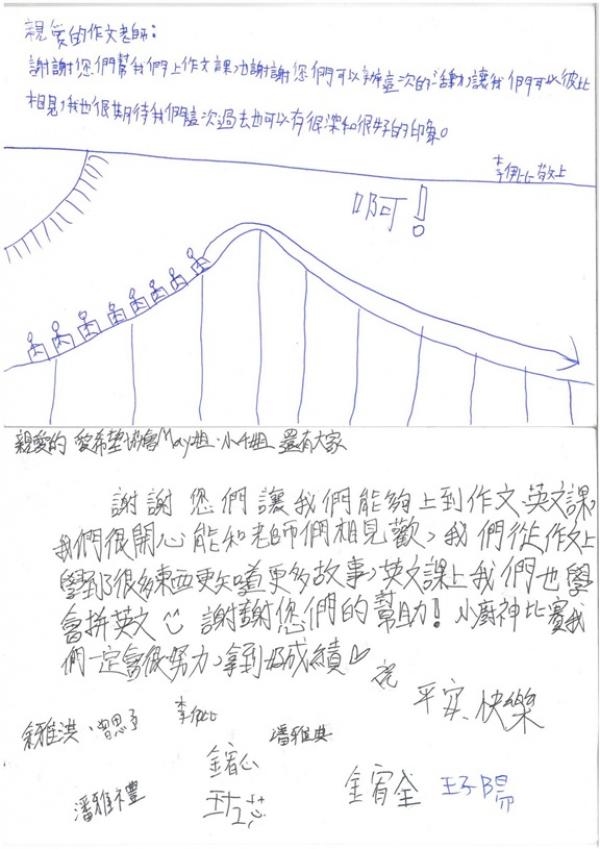 親愛的作文老師：
謝謝您們幫我們上作文課，也謝謝您們可以辦這次的活動，讓我們可以彼此
相見，我也很期待我們這次過去也可以有很深和很好的印象。
李伊 敬上
啊！
親愛的 愛希望協會May姐、小千姐 還有大家
謝謝您們讓我們能夠上到作文、英文課，
我們很開心能和老師們相見歡，我們從作文上
學到了很多東西更知道更多故事，英文課上我們也學
會拼英文 謝謝您們的幫助！小廚神比賽我
們一定會很努力，拿到好成績♡
祝
平安、快樂
雅洪、曾思予 李伊 潘雅典
潘雅禮 金宥心 金宥全 王子陽